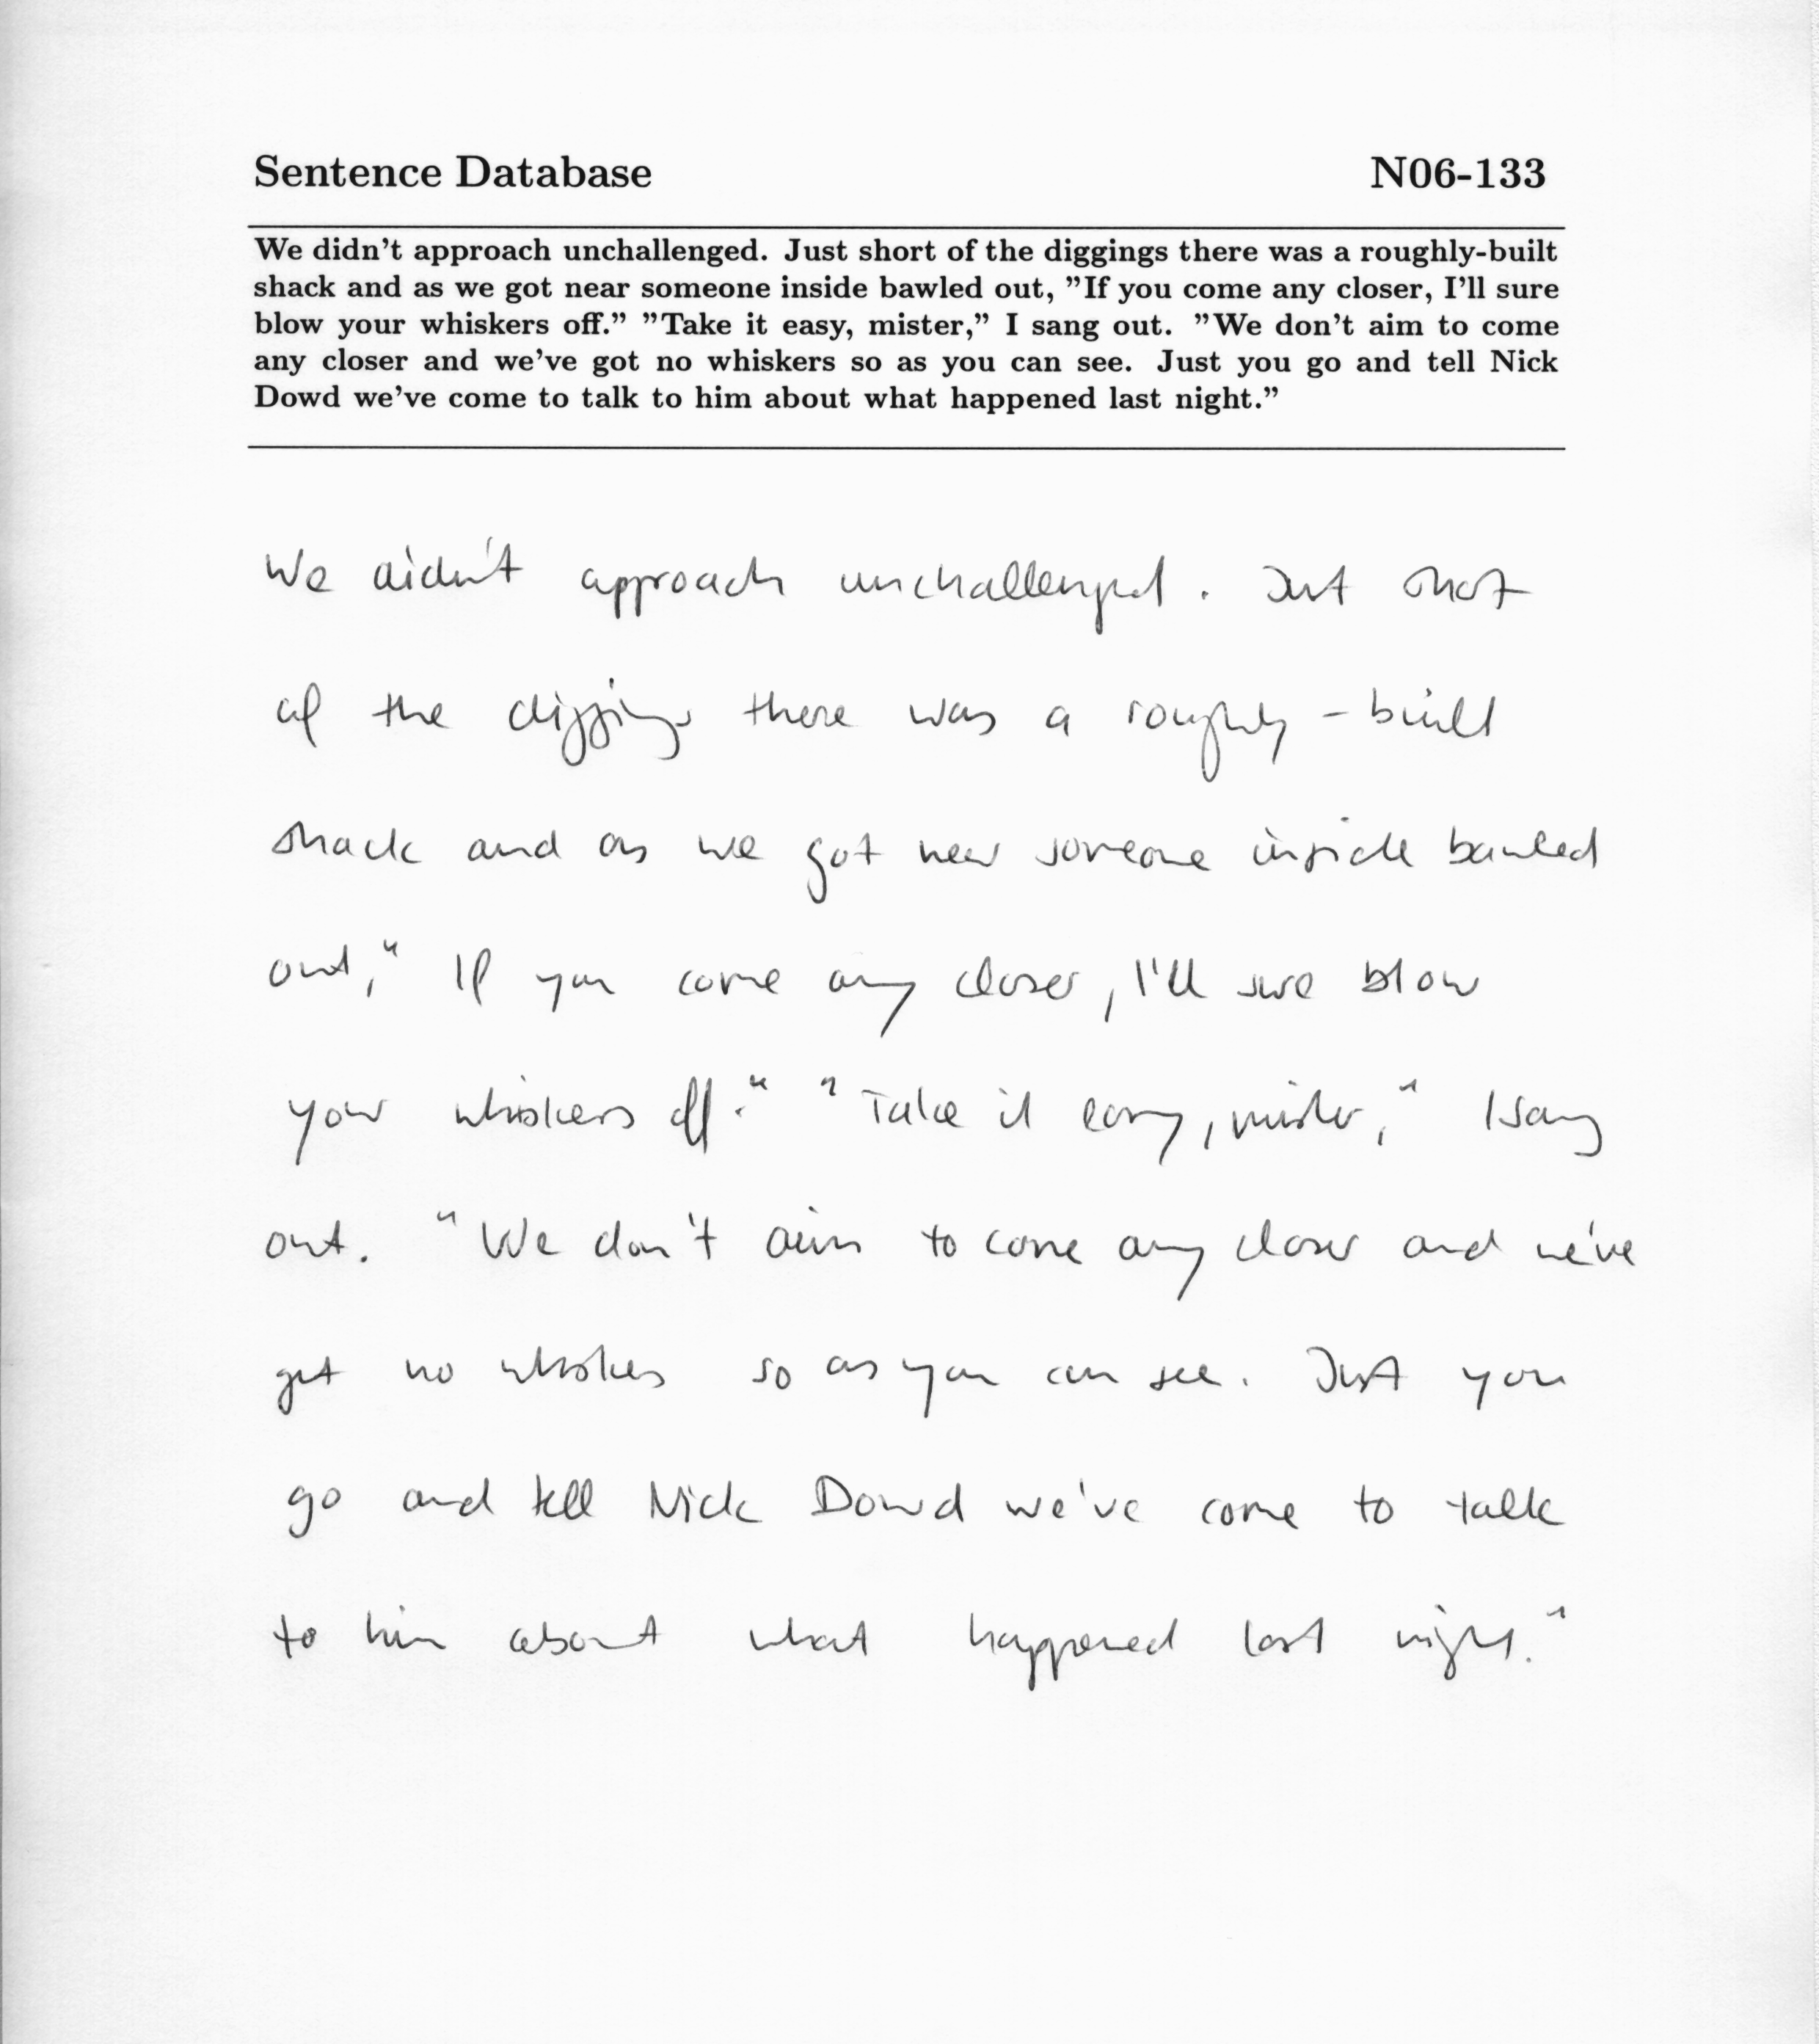 Sentence Database N06-133
We didn't approach unchallenged. Just short of the diggings there was a roughly-built
shack and as we got near someone inside bawled out, ”If you come any closer, I'll sure
blow your whiskers off.” ”Take it easy, mister,” I sang out. ”We don't aim to come
any closer and we've got no whiskers so as you can see. Just you go and tell Nick
Dowd we've come to talk to him about what happened last night.”
We didn't approach unchallenged. Just short
of the diggings there was a roughly-built
shack and as we got near someone inside bawled
out," If you come any closer, I'll sure blow
your whiskers off." "Take it easy, mister," I sang
out. "We don't aim to come any closer and we've
got no whiskers so as you can see. Just you
go and tell Nick Dowd we've come to talk
to him about what happened last night."